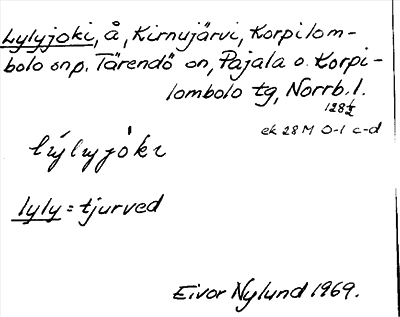 Lylyjoki, å, Kirnujärvi, Korpilom-
bolo snp. Tärendö on, Pajala o. Korpi-
lombolo tg, Norrb. l.
128½
ek 28 M 0-1 c-d
lýlyjòkı
lyly = tjurved
Eivor Nylund 1969.